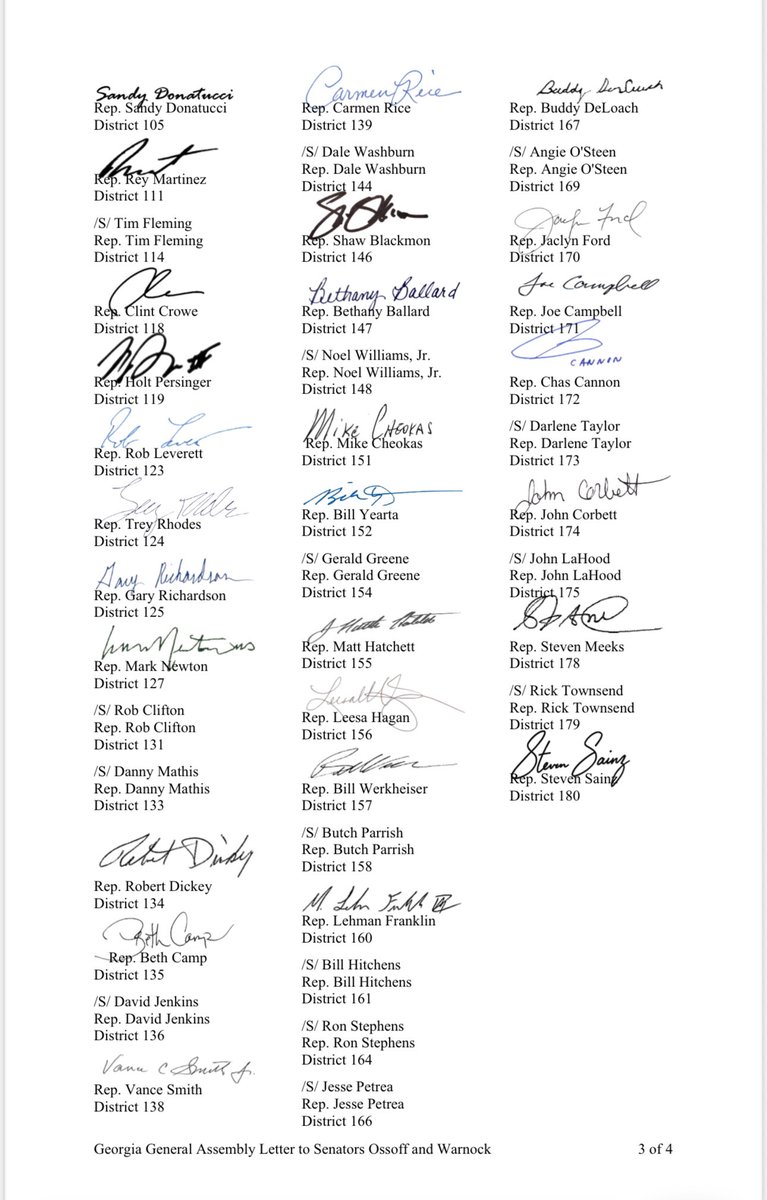 Sandy Donatucci
Rep. Sandy Donatucci
District 105
Rep. Rey Martinez
District 111
/S/ Tim Fleming
Rep. Tim Fleming
District 114
Rep. Clint Crowe
District 118
Rep. Holt Persinger
District 119
Rep. Rob Leverett
District 123
Rep. Trey Rhodes
District 124
Gary Richardson
Rep. Gary Richardson
District 125
Rep. Mark Newton
District 127
/S/ Rob Clifton
Rep. Rob Clifton
District 131
/S/ Danny Mathis
Rep. Danny Mathis
District 133
Robert Dickey
Rep. Robert Dickey
District 134
Beth Camp
Rep. Beth Camp
District 135
/S/ David Jenkins
Rep. David Jenkins
District 136
Vance C Smith Jr.
Rep. Vance Smith
District 138
Carmen Rice
Rep. Carmen Rice
District 139
/S/ Dale Washburn
Rep. Dale Washburn
District 144
Rep. Shaw Blackmon
District 146
Bethany Ballard
Rep. Bethany Ballard
District 147
/S/ Noel Williams, Jr.
Rep. Noel Williams, Jr.
District 148
Mike Cheokas
Rep. Mike Cheokas
District 151
Rep. Bill Yearta
District 152
/S/ Gerald Greene
Rep. Gerald Greene
District 154
Rep. Matt Hatchett
District 155
Rep. Leesa Hagan
District 156
Rep. Bill Werkheiser
District 157
/S/ Butch Parrish
Rep. Butch Parrish
District 158
Rep. Lehman Franklin
District 160
/S/ Bill Hitchens
Rep. Bill Hitchens
District 161
/S/ Ron Stephens
Rep. Ron Stephens
District 164
/S/ Jesse Petrea
Rep. Jesse Petrea
District 166
Buddy DeLoach
Rep. Buddy DeLoach
District 167
/S/ Angie O'Steen
Rep. Angie O'Steen
District 169
Jaclyn Ford
Rep. Jaclyn Ford
District 170
Joe Campbell
Rep. Joe Campbell
District 171
CANNON
Rep. Chas Cannon
District 172
/S/ Darlene Taylor
Rep. Darlene Taylor
District 173
John Corbett
Rep. John Corbett
District 174
/S/ John LaHood
Rep. John LaHood
District 175
Rep. Steven Meeks
District 178
/S/ Rick Townsend
Rep. Rick Townsend
District 179
Steven Sainz
Rep. Steven Sainz
District 180
Georgia General Assembly Letter to Senators Ossoff and Warnock
3 of 4